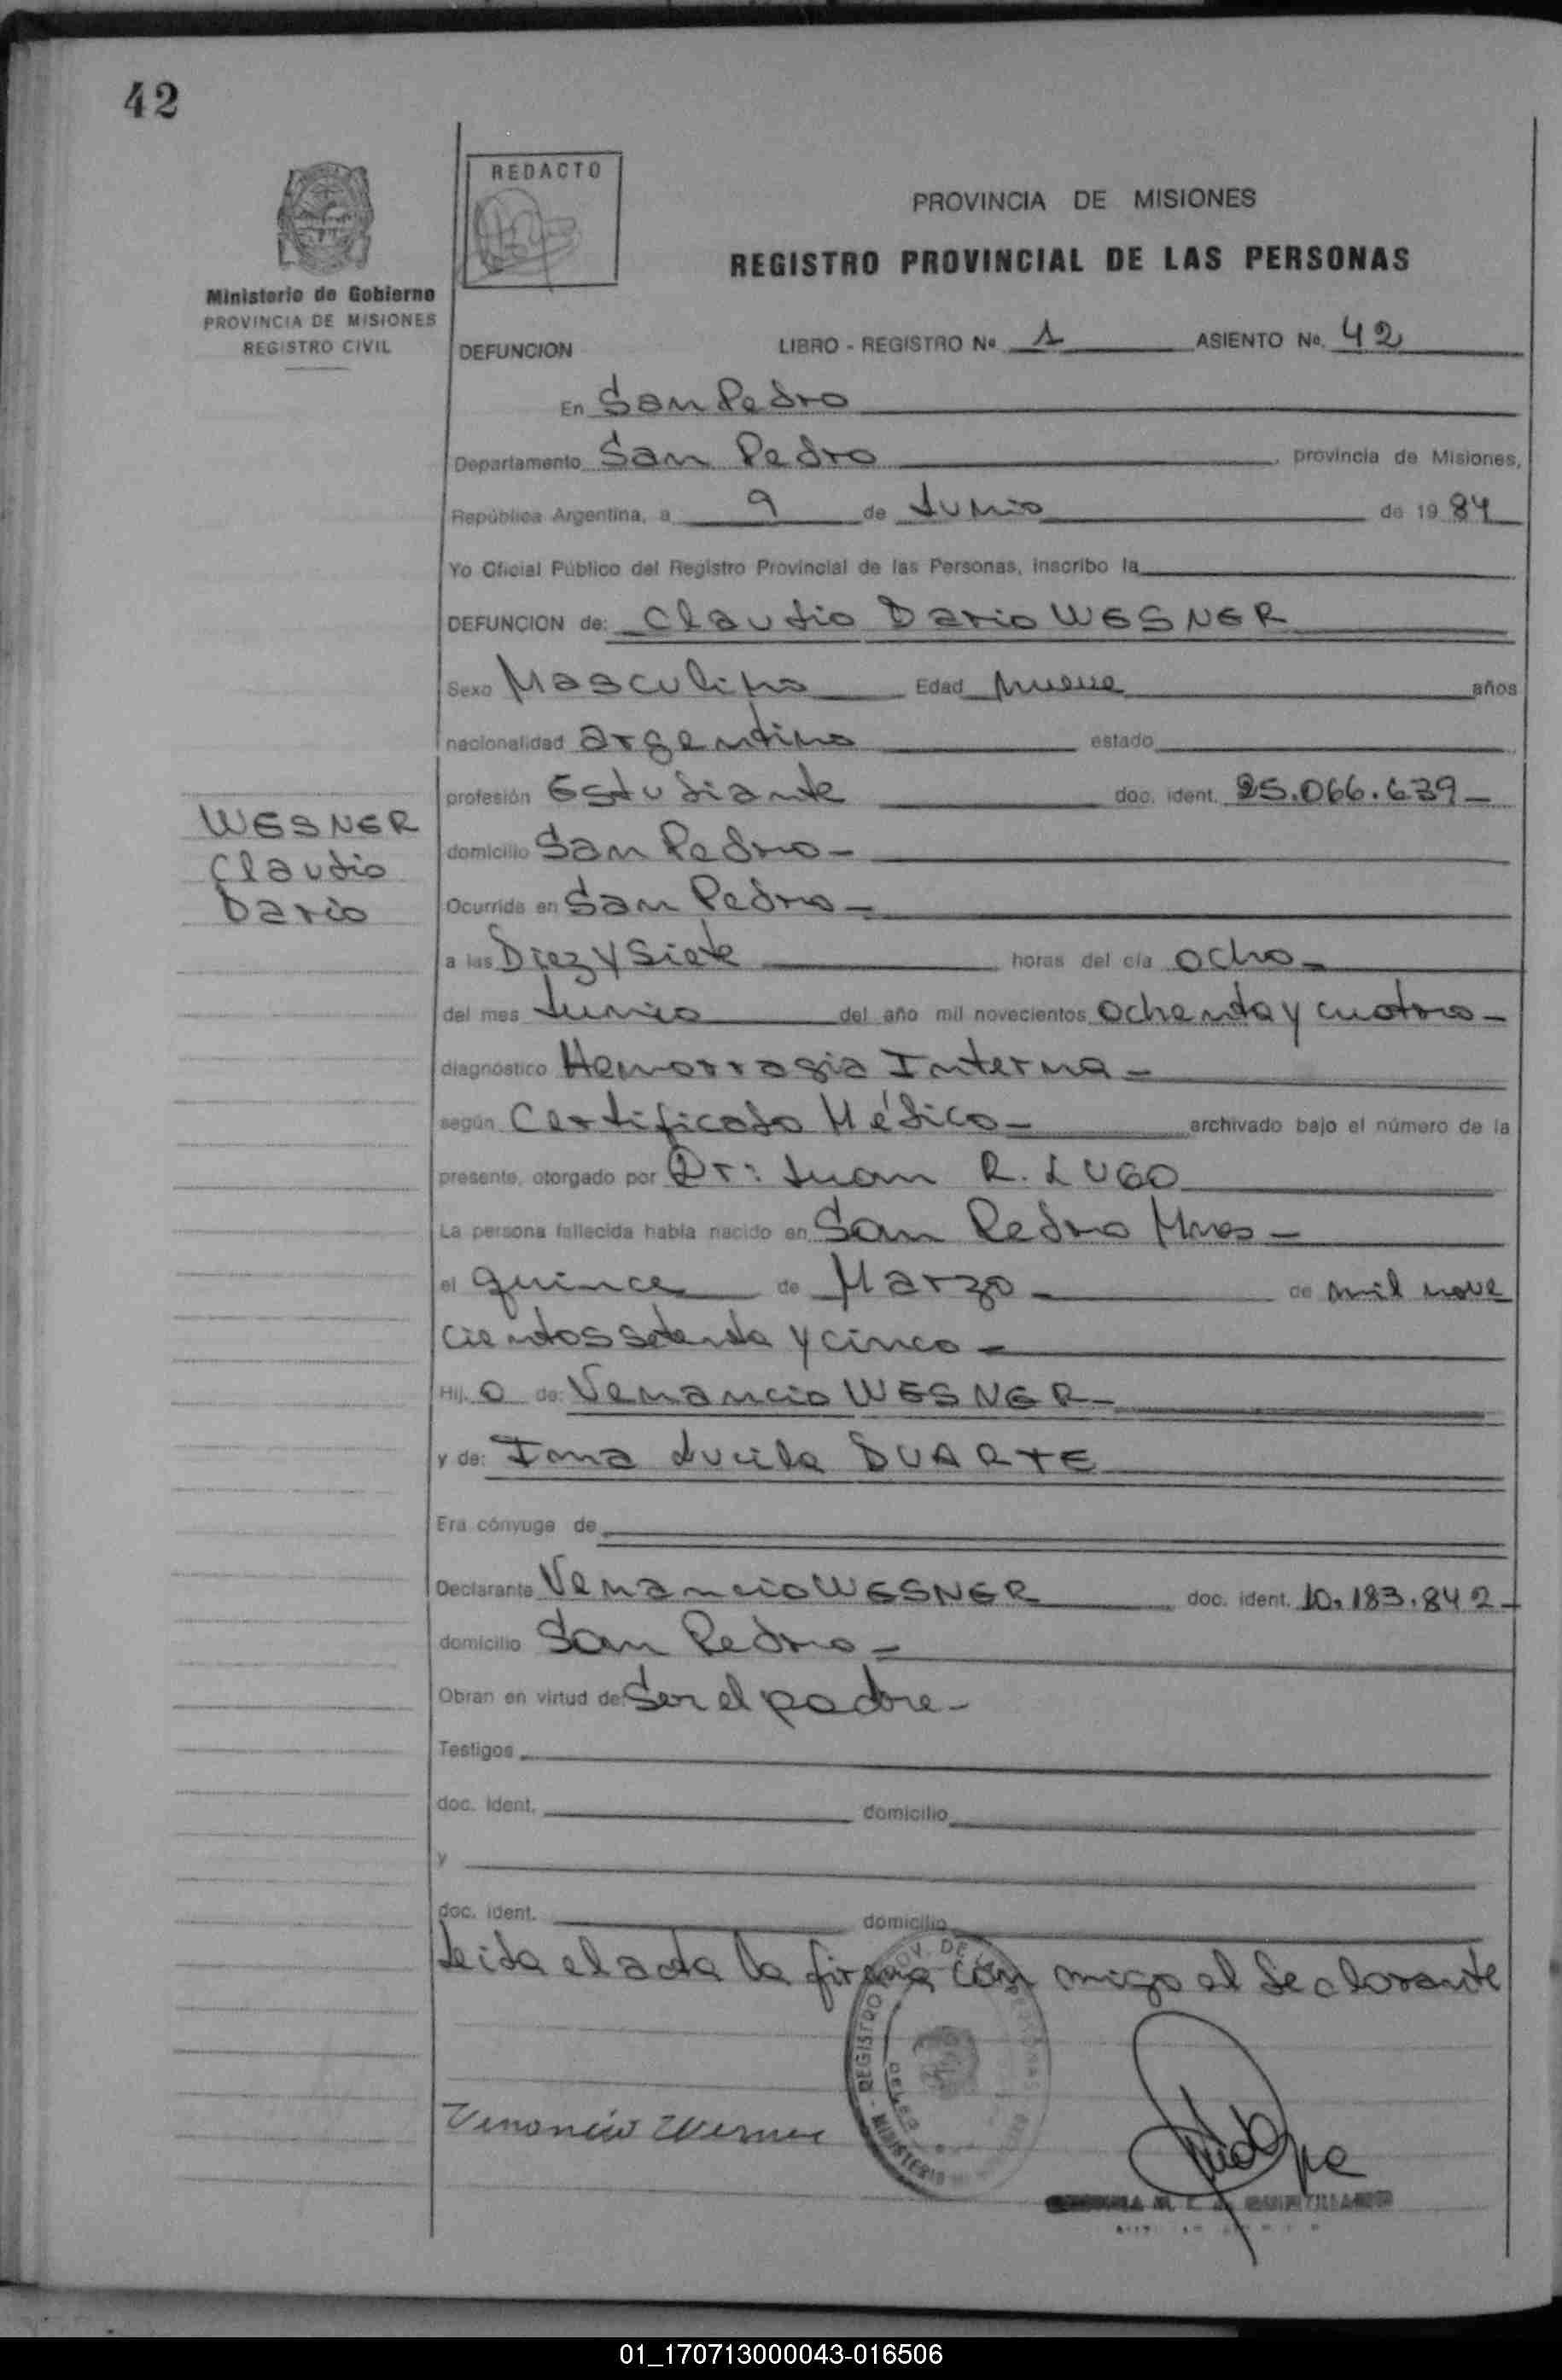 42
REDACTO
PROVINCIA DE MISIONES
REGISTRO PROVINCIAL DE LAS PERSONAS
Ministerio de Gobierno
PROVINCIA DE MISIONES
REGISTRO CIVIL
DEFUNCION LIBRO - REGISTRO Nº 1 ASIENTO Nº 42
En San Pedro
Departamento San Pedro, provincia de Misiones,
República Argentina, a 9 de Junio de 1984
Yo Oficial Público del Registro Provincial de las Personas, inscribo la
DEFUNCION de: Claudio Dario WESNER
Sexo Masculino Edad nueve años
nacionalidad argentino estado
profesión Estudiante doc. ident. 25.066.639-
WESNER
Claudio
Dario
domicilio San Pedro-
Ocurrida en San Pedro-
a las Diez y Siete horas del día ocho-
del mes Junio del año mil novecientos ochenta y cuatro-
diagnóstico Hemorragia Interna-
según Certificado Médico- archivado bajo el número de la
presente, otorgado por Dr: Juan R. LUGO
La persona fallecida había nacido en San Pedro Mnes-
el quince de Marzo- de mil nove
cientos setenta y cinco-
Hij o de: Venancio WESNER-
y de: Irma Lucila DUARTE
Era cónyuge de
Declarante Venancio WESNER doc. ident. 10.183.842-
domicilio San Pedro-
Obran en virtud de: Ser el padre-
Testigos
doc. ident. domicilio
y
doc. ident. domicilio
Leida el acta la firma con migo el declarante
REGISTRO PROV. DE LAS PERSONAS - MINISTERIO
Venancio Wesner
01_170713000043-016506